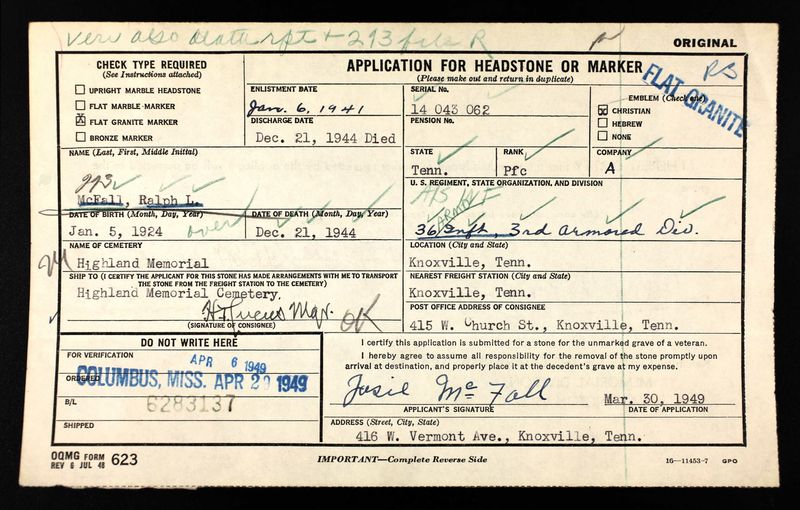 Veri also death rpt + 293 file R
ORIGINAL
CHECK TYPE REQUIRED
(See Instructions attached)
UPRIGHT MARBLE HEADSTONE
FLAT MARBLE MARKER
X FLAT GRANITE MARKER
BRONZE MARKER
APPLICATION FOR HEADSTONE OR MARKER
(Please make out and return in duplicate)
FLAT GRANITE
ENLISTMENT DATE
Jan. 6, 1941
DISCHARGE DATE
Dec. 21, 1944 Died
SERIAL No.
14 043 062
PENSION No.
EMBLEM (Check one)
X CHRISTIAN
HEBREW
NONE
NAME (Last, First, Middle Initial)
McFall, Ralph L.
STATE
Tenn.
RANK
Pfc
COMPANY
A
U. S. REGIMENT, STATE ORGANIZATION, AND DIVISION
ARMD INF
36 Infth, 3rd Armored Div.
DATE OF BIRTH (Month, Day, Year)
Jan. 5, 1924
over
DATE OF DEATH (Month, Day, Year)
Dec. 21, 1944
NAME OF CEMETERY
Highland Memorial
LOCATION (City and State)
Knoxville, Tenn.
SHIP TO (I CERTIFY THE APPLICANT FOR THIS STONE HAS MADE ARRANGEMENTS WITH ME TO TRANSPORT
THE STONE FROM THE FREIGHT STATION TO THE CEMETERY)
Highland Memorial Cemetery.
Mgr.
OK
(SIGNATURE OF CONSIGNEE)
NEAREST FREIGHT STATION (City and State)
Knoxville, Tenn.
POST OFFICE ADDRESS OF CONSIGNEE
415 W. Church St., Knoxville, Tenn.
DO NOT WRITE HERE
FOR VERIFICATION
APR 6 1949
ORDERED
COLUMBUS, MISS. APR 20 1949
B/L
6283137
SHIPPED
I certify this application is submitted for a stone for the unmarked grave of a veteran.
I hereby agree to assume all responsibility for the removal of the stone promptly upon
arrival at destination, and properly place it at the decedent's grave at my expense.
Josie McFall
Mar. 30, 1949
APPLICANT'S SIGNATURE
DATE OF APPLICATION
ADDRESS (Street, City, State)
416 W. Vermont Ave., Knoxville, Tenn.
OQMG FORM
REV 6 JUL 48 623
IMPORTANT—Complete Reverse Side
16—11453-7 GPO